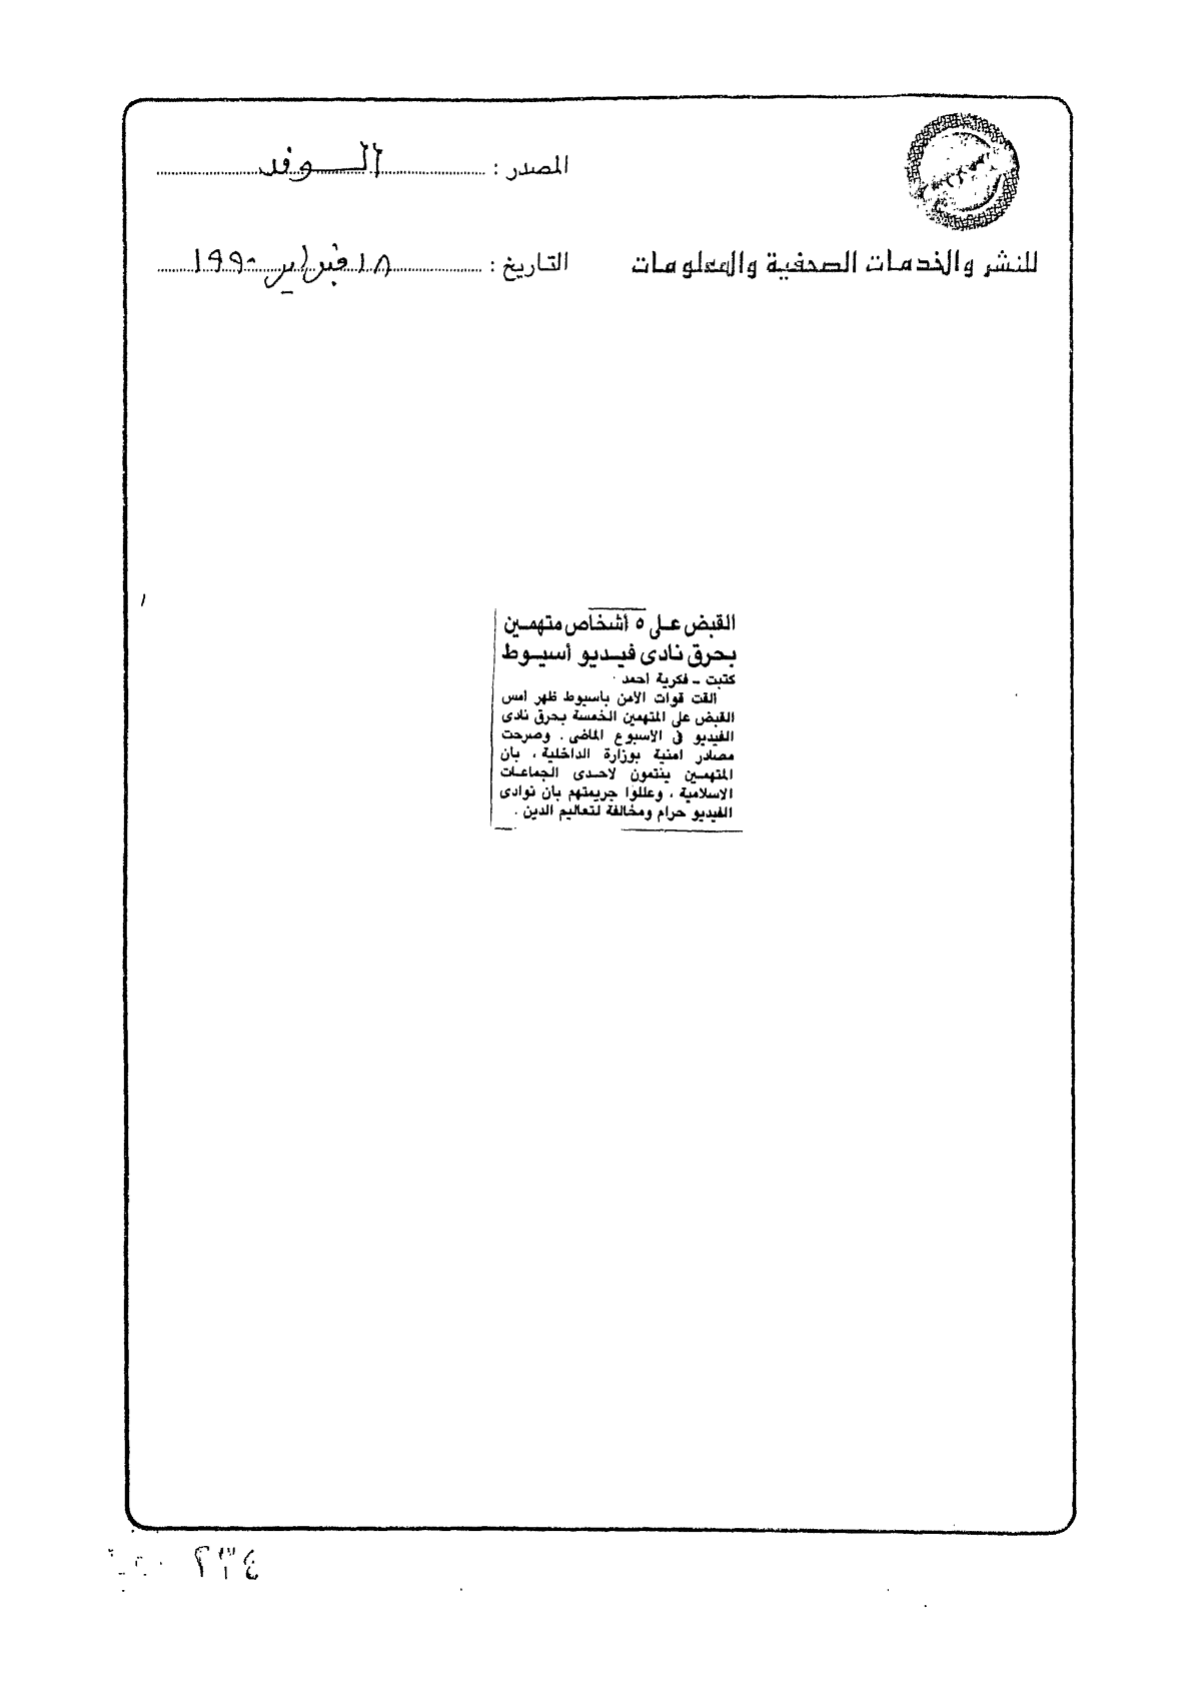 المصدر : الوفد
للنشر والخدمات الصحفية والمعلومات
التاريخ : ١٨ فبراير ١٩٩٠
القبض على ٥ أشخاص متهمين
بحرق نادى فيديو أسيوط
كتبت - فكرية احمد
القت قوات الأمن باسيوط ظهر امس
القبض على المتهمين الخمسة بحرق نادى
الفيديو فى الاسبوع الماضى . وصرحت
مصادر امنية بوزارة الداخلية ، بان
المتهمين ينتمون لاحدى الجماعات
الاسلامية ، وعللوا جريمتهم بان نوادى
الفيديو حرام ومخالفة لتعاليم الدين .